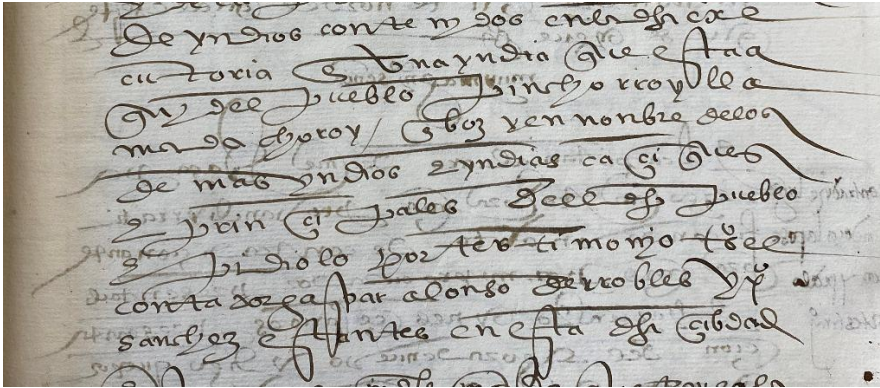 de yndios contenydos en la dha exe
cutoria e una yndia que esta a
qui del pueblo pinchorroy lla
mada choroy / e boz y en nonbre de los
de mas yndios e yndias caciques
e prin cipales del dho pueblo
e pidiolo por testimonyo tos el
contador gaspar alonso de rrobles y xpo
sanchez estantes en esta dha cibdad